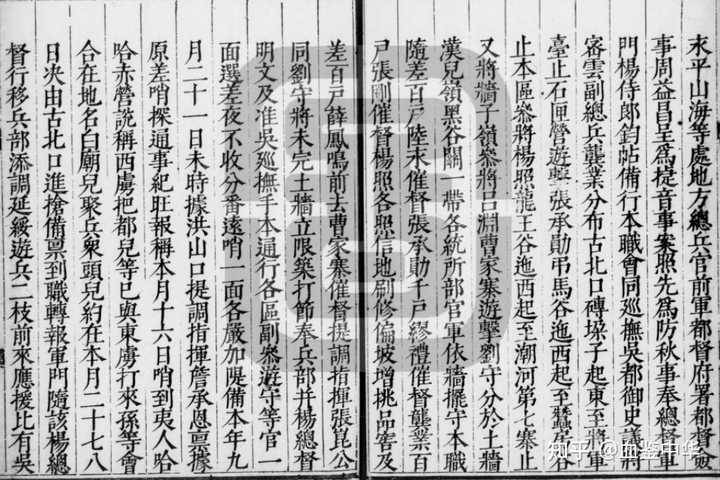 永平山海等處地方總兵官前軍都督府署都督僉
事周益昌呈爲揵音事案照先爲防秋事奉總督軍
門楊侍郎鈞帖備行本職會同巡撫吳都御史議將
密雲副總兵龔業分布古北口磚垜子起東至將軍
臺止石匣營遊擊張承勛弔馬谷迤西起至蠶房谷
止本區叅將楊照龍王谷迤西起至潮河第七寨止
又將牆子嶺叅將呂淵曹家寨遊擊劉守分於土牆
漢兒嶺黑谷關一帶各統所部官軍依牆擺守本職
隨差百戶陸東催督張承勛千戶繆禮催督龔業百
戶張剛催督楊照各照信地刷修偏坡增挑品窖及
差百戶薛鳳鳴前去曹家寨催督提調指揮張崑公
同劉守將未完土牆立限築打節奉兵部并楊總督
明文及准吳廵撫手本通行各區副叅遊守等官一
面選差夜不收分番遠哨一面各嚴加隄備本年九
月二十一日未時據洪山口提調指揮詹承恩稟據
原差哨探通事紀旺報稱本月十六日哨到夷人哈
哈赤營說稱西虜把都兒等已與東虜打來孫等會
合在地名白廟兒聚兵衆頭兒約在本月二十七八
日夾由古北口進搶備稟到職轉報軍門隨該楊總
督行移兵部添調延綏遊兵二枝前來應援比有吳
知乎 @血鉴中华